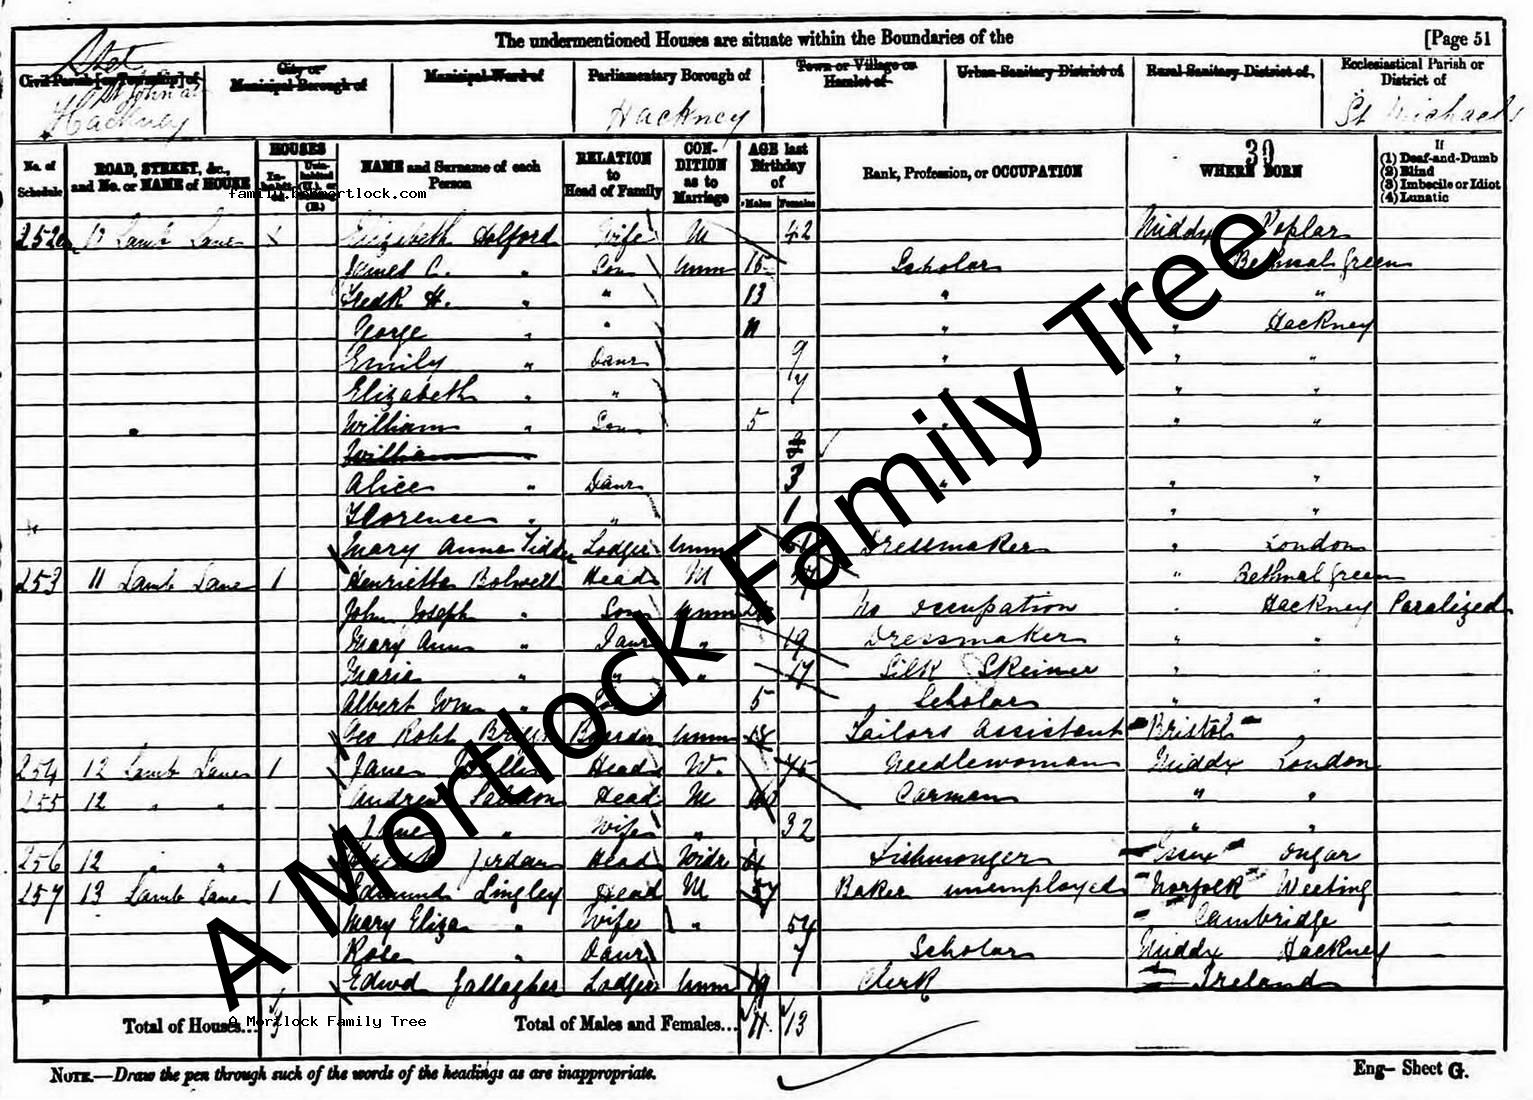 The undermentioned Houses are situate within the Boundaries of the [Page 51
Civil Parish [or Township] of City or Municipal Borough of Municipal Ward of Parliamentary Borough of Town or Village or Hamlet of Urban Sanitary District of Rural Sanitary District of Ecclesiastical Parish or District of
St John at Hackney Hackney St Michaels
No. of Schedule ROAD, STREET, &c., and No. or NAME of HOUSE HOUSES Inhabited Uninhabited (U.), or (B.) NAME and Surname of each Person RELATION to Head of Family CONDITION as to Marriage AGE last Birthday of Males Females Rank, Profession, or OCCUPATION WHERE BORN If (1) Deaf-and-Dumb (2) Blind (3) Imbecile or Idiot (4) Lunatic
30
family.bpmortlock.com
252a Lamb Lane Elizabeth Holford Wife M 42 Middx Poplar
James C. " Son Unm 15 Scholar Bethnal Green
Fredk H. " " 13 " "
George " " 11 " " Hackney
Emily " Daur 9 " " "
Elizabeth " " 7 " " "
William " Son 5 " " "
William
Alice " Daur 3 " " "
Florence " " 1 " "
Mary Anna Lodger Unm Dressmaker " London
253 11 Lamb Lane 1 Henrietta Bolwell Head M " Bethnal Green
John Joseph " Son Unm No occupation " Hackney Paralized
Mary Ann " Daur " 19 Dressmaker " "
Maria " " " 17 Silk Skeiner " "
Albert Wm " 5 Scholar " "
Geo Robt Boarder Unm 18 Tailors assistant Bristol
254 12 Lamb Lane 1 Jane Head W. 75 Needlewoman Middx London
255 12 " " Andrew Head M Carman " "
Jane " Wife " 32 " "
256 12 " " Jordan Head Widr Fishmonger Essex Ongar
257 13 Lamb Lane 1 Edmund Lingley Head M 57 Baker unemployed Norfolk Weeting
Mary Eliza " Wife " 54 Cambridge
Rose " Daur 7 Scholar Middx Hackney
Edwd Gallagher Lodger Unm 19 Clerk Ireland
Total of Houses... Total of Males and Females... 11 13
A Mortlock Family Tree
A Mortlock Family Tree
NOTE.—Draw the pen through such of the words of the headings as are inappropriate.
Eng— Sheet G.